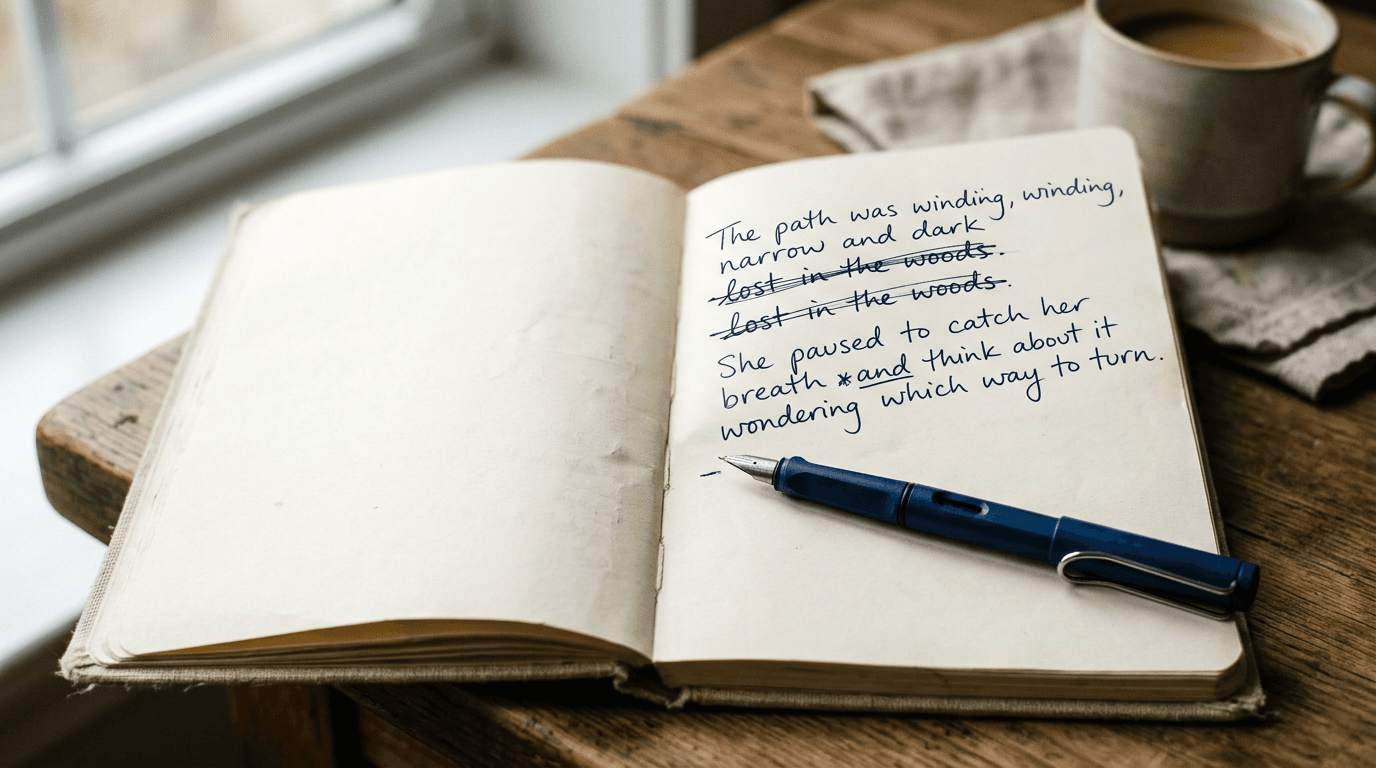 The path was winding, winding,
narrow and dark
lost in the woods.
lost in the woods.
She paused to catch her
breath *and think about it
wondering which way to turn.